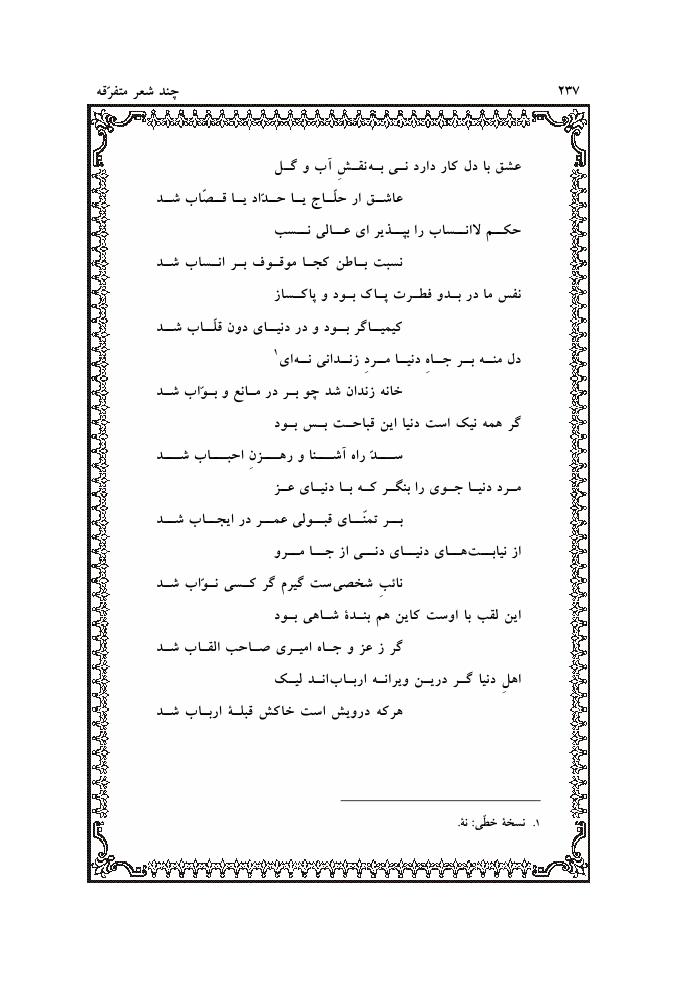 ۲۳۷ چند شعر متفرّقه
عشق با دل کار دارد نی به‌نقشِ آب و گل
عاشق ار حلّاج یا حدّاد یا قصّاب شد
حکم لاانساب را بپذیر ای عالی نسب
نسبت باطن کجا موقوف بر انساب شد
نفس ما در بدو فطرت پاک بود و پاکساز
کیمیاگر بود و در دنیای دون قلّاب شد
دل منه بر جاهِ دنیا مردِ زندانی نه‌ای۱
خانه زندان شد چو بر در مانع و بوّاب شد
گر همه نیک است دنیا این قباحت بس بود
سدّ راه آشنا و رهزنِ احباب شد
مرد دنیا جوی را بنگر که با دنیای عز
بر تمنّای قبولی عمر در ایجاب شد
از نیابت‌های دنیای دنی از جا مرو
نائبِ شخصی‌ست گیرم گر کسی نوّاب شد
این لقب با اوست کاین هم بندۀ شاهی بود
گر ز عز و جاه امیری صاحب القاب شد
اهلِ دنیا گر درین ویرانه ارباب‌اند لیک
هرکه درویش است خاکش قبلۀ ارباب شد
۱. نسخۀ خطّی: نۀ.